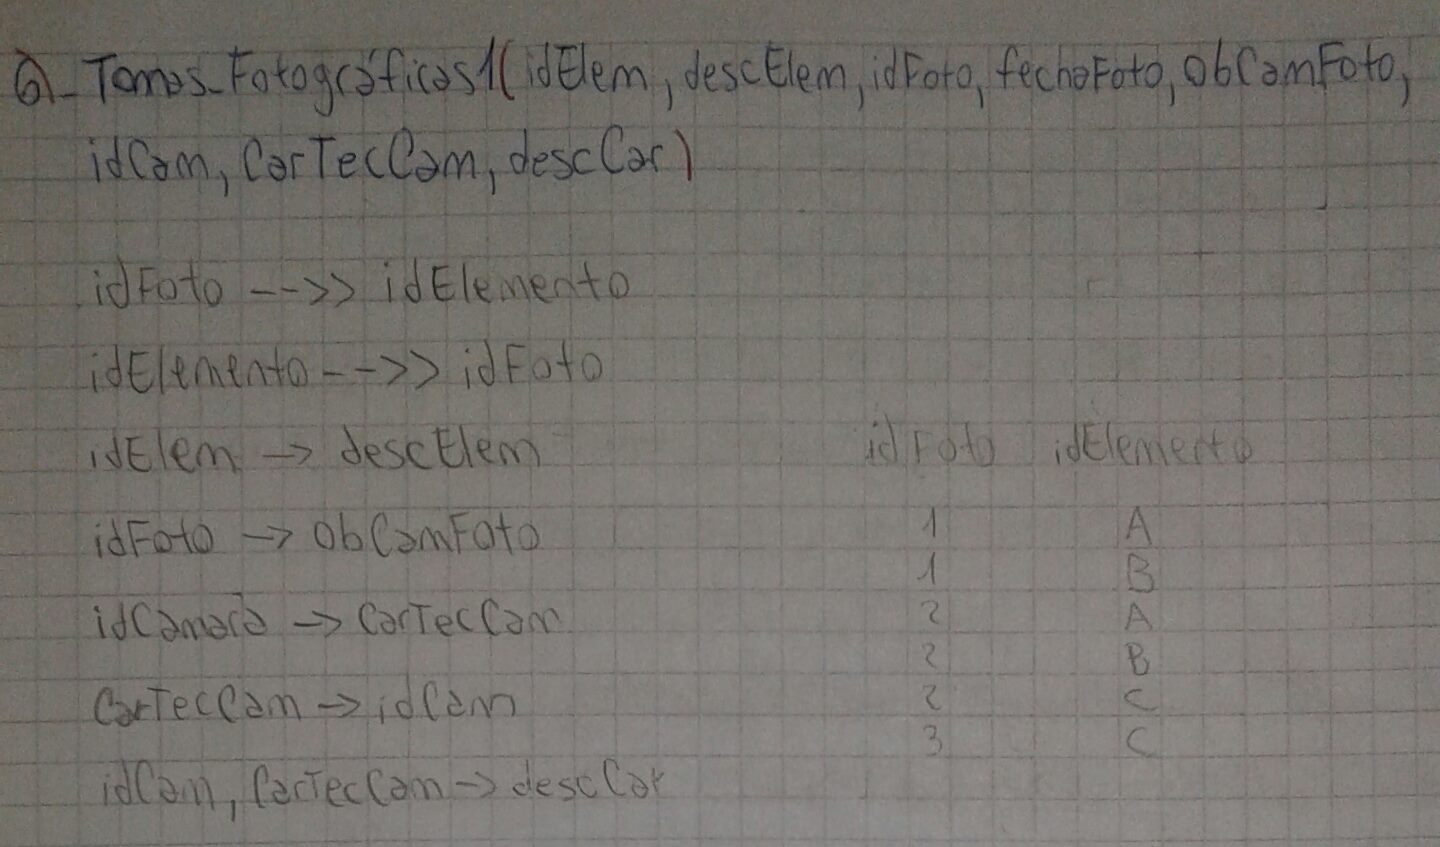 a_ Tomas_Fotográficas1(idElem, descElem, idFoto, fechaFoto, obCamFoto,
idCam, CarTecCam, descCar)
idFoto -->> idElemento
idElemento -->> idFoto
idElem -> descElem
idFoto -> obCamFoto
idCamara -> CarTecCam
CarTecCam -> idCam
idCam, CarTecCam -> descCar
idFoto idElemento
1 A
1 B
2 A
2 B
2 C
3 C